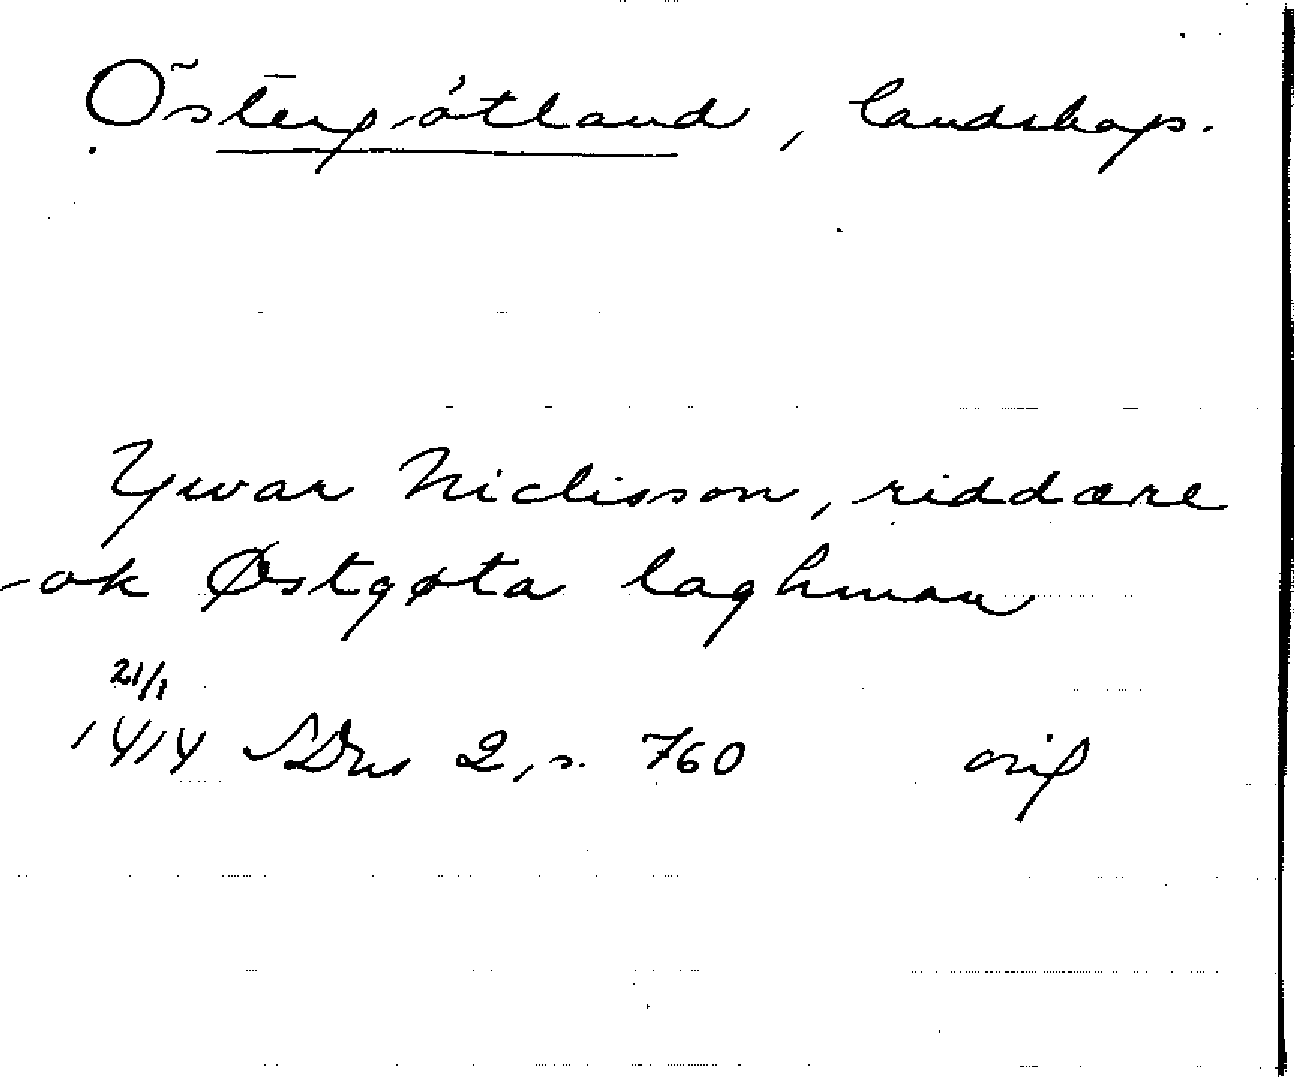 Östergötland, landskap.
Ywar Niclisson, riddære
ok Østgøta laghman
21/1
1414 SDns 2, s. 760 orig